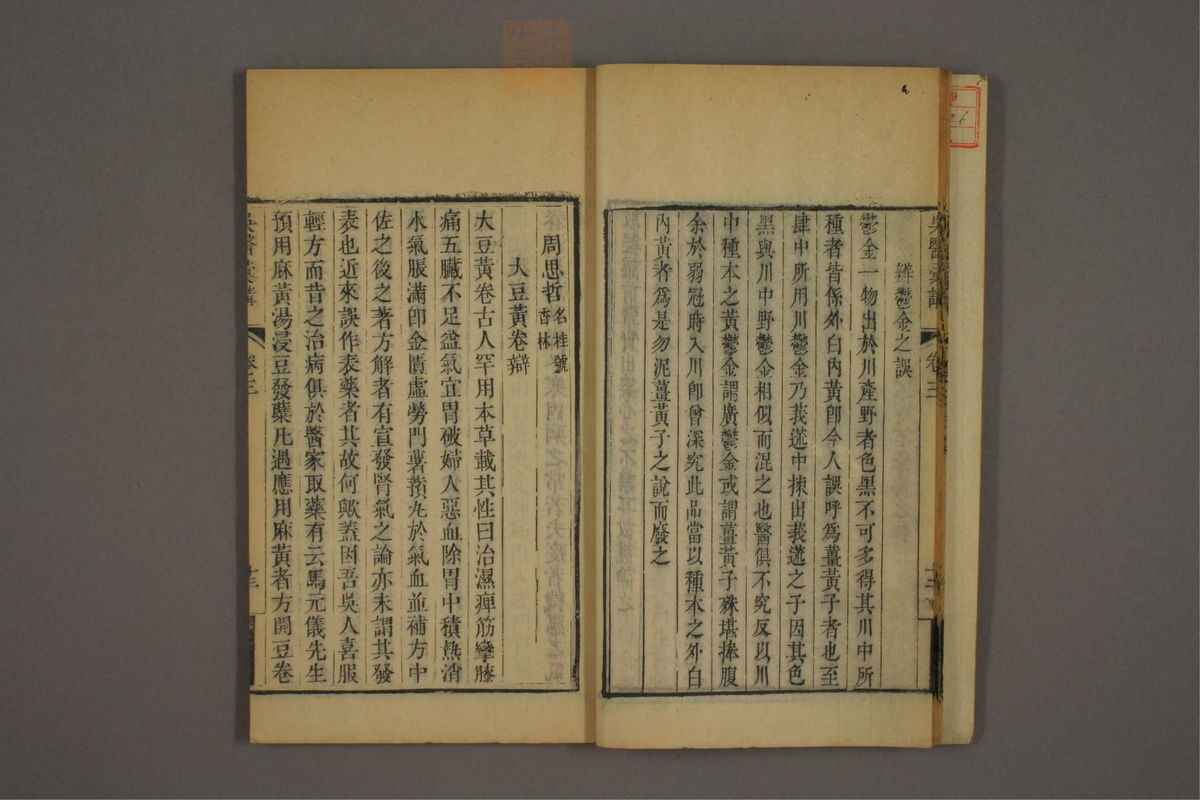 辨鬱金之誤
鬱金一物出於川產野者色黑不可多得其川中所
種者皆係外白內黃卽今人誤呼爲薑黃子者也至
肆中所用川鬱金乃莪蒁中揀出莪蒁之子因其色
黑與川中野鬱金相似而混之也醫俱不究反以川
中種本之黃鬱金謂廣鬱金或謂薑黃子殊堪捧腹
余於弱冠時入川卽曾深究此品當以種本之外白
內黃者爲是勿泥薑黃子之說而廢之
吳醫彙講 卷三
周思哲名桂號香林
大豆黃卷辯
大豆黃卷古人罕用本草載其性曰治濕痺筋攣膝
痛五臟不足益氣宜胃破婦人惡血除胃中積熱消
水氣脹滿卽金匱虛勞門薯蕷丸於氣血並補方中
佐之後之著方解者有宣發腎氣之論亦未謂其發
表也近來誤作表藥者其故何歟蓋因吾吳人喜服
輕方而昔之治病俱於醫家取藥有云馬元儀先生
預用麻黃湯浸豆發蘗凡遇應用麻黃者方開豆卷
吳醫彙講 卷三 十三